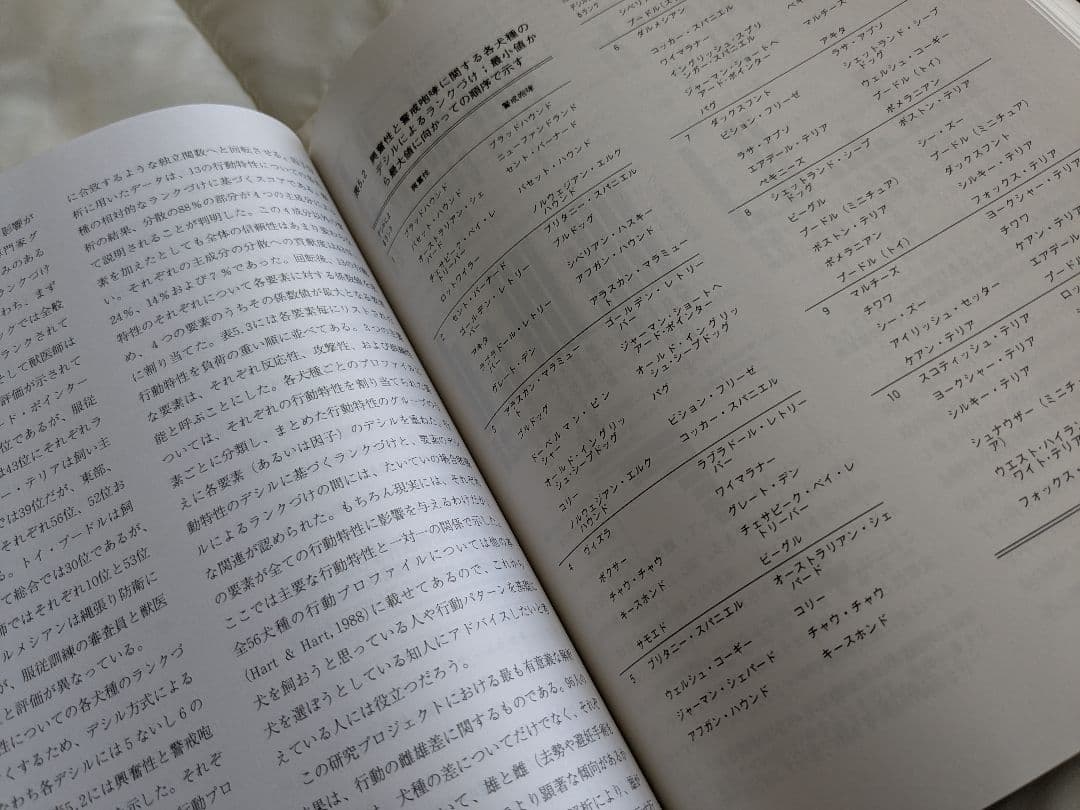 影響が
門家グ
みのある
ランクづけ
わち，まず
ックでは全般
ランクされて
として獣医師は
評価が示されて
ド・ポインター
位であるが、服従
は43位にそれぞれラ
ー・テリアは飼い主
では39位だが、東部、
それぞれ56位、52位お
る。トイ・プードルは飼
て総合では30位であるが、
師ではそれぞれ10位と53位
ルメシアンは縄張り防衛に
が、服従訓練の審査員と獣医
と評価が異なっている。
性についての各犬種のランクづ
くするため、デシル方式による
なわち各デシルには5ないし6の
表5.2には興奮性と警戒咆
示した。それぞ
行動プロ
に合致するような独立関数へと回転させる。
析に用いたデータは、13の行動特性につい
種の相対的なランクづけに基づくスコアであ
析の結果、分散の88％の部分が4つの主成分に
て説明されることが判明した。この4成分以
素を加えたとしても全体の信頼性はあまり
い。それぞれの主成分の分散への貢献度は
24％、14％および7％であった。回転後、13の
特性のそれぞれについて各要素に対する係数
め、4つの要素のうちその係数値が最大となる
に割り当てた。表5.3には各要素毎にリスト
行動特性を負荷の重い順に並べてある。3つの主
な要素は、それぞれ反応性、攻撃性、および
能と呼ぶことにした。各犬種ごとのプロファイ
ついては、それぞれの行動特性を割り当てられた
素ごとに分類し、まとめた行動特性のグループ
えに各要素（あるいは因子）のデシルを重ねた。
動特性のデシルに基づくランクづけと、要素の
ルによるランクづけの間には、たいていの場合
な関連が認められた。もちろん現実には、それぞれ
の要素が全ての行動特性に影響を与えるわけだが、
ここでは主要な行動特性と一対一の関係で示した。
全56犬種の行動プロファイルについては他の本
(Hart & Hart, 1988)に載せてあるので、これから
犬を飼おうと思っている人や行動パターンを基礎に
犬を選ぼうとしている知人にアドバイスしたいと考
えている人には役立つだろう。
この研究プロジェクトにおける最も有意義な解析
結果は、行動の雌雄差に関するものである。96人の
犬種の差についてだけでなく、それぞ
いて、雄と雌（去勢や避妊手術を
より顕著な傾向があるの
表5.2 興奮性と警戒咆哮に関する各犬種の
デシルによるランクづけ；最小値か
ら最大値に向かっての順序で示す
興奮性 警戒咆哮
1 ブラッドハウンド ブラッドハウンド
バセット・ハウンド ニューファンドランド
オーストラリアン・シェパード セント・バーナード
チェサピーク・ベイ・レトリーバー バセット・ハウンド
ロットワイラー ノルウェジアン・エルクハウンド
2 セント・バーナード ブリタニー・スパニエル
ゴールデン・レトリーバー ブルドッグ
アキタ シベリアン・ハスキー
ラブラドール・レトリーバー アフガン・ハウンド
グレート・デン アラスカン・マラミュー
3 アラスカン・マラミュー ゴールデン・レトリーバー
ブルドッグ ジャーマン・ショートヘアードポインター
ドーベルマン・ピンシャー オールド・イングリッシュ・シープドッグ
オールド・イングリッシュ・シープドッグ パグ
コリー ビション・フリーゼ
ノルウェジアン・エルクハウンド コッカー・スパニエル
4 ヴィズラ ラブラドール・レトリーバー
ボクサー ワイマラナー
チャウ・チャウ グレート・デン
キースホンド チェサピーク・ベイ・レトリーバー
サモエド ビーグル
5 ブリタニー・スパニエル オーストラリアン・シェパード
ウェルシュ・コーギー コリー
ジャーマン・シェパード チャウ・チャウ
アフガン・ハウンド キースホンド
デシル
&ランク
シベリ
プードル(ス
6 ダルメシアン
コッカー・スパニエル
ワイマラナー
イングリッシュ・スプリンガー・スパニエル
ジャーマン・ショートヘアードポインター
パグ
7 ダックスフント
ビション・フリーゼ
ラサ・アプソ
エアデール・テリア
ペキニーズ
8 シェットランド・シープドッグ
ビーグル
プードル（ミニチュア）
ボストン・テリア
ポメラニアン
9 プードル（トイ）
マルチーズ
チワワ
シー・ズー
アイリッシュ・セッター
ケアン・テリア
10 スコティッシュ・テリア
ヨークシャー・テリア
シルキー・テリア
シュナウザー（ミニチ
ウエスト・ハイラ
ワイト・テリア
フォックス・
ペキ
マルチーズ
アキタ
ラサ・アプソ
シェットランド・シープドッグ
ウェルシュ・コーギー
プードル（トイ）
ポメラニアン
ボストン・テリア
シー・ズー
プードル（ミニチュア）
ダックスフント
シルキー・テリア
フォックス・テリア
ヨークシャー・テリア
チワワ
ケアン・テリア
エアデール
プード
ロッ